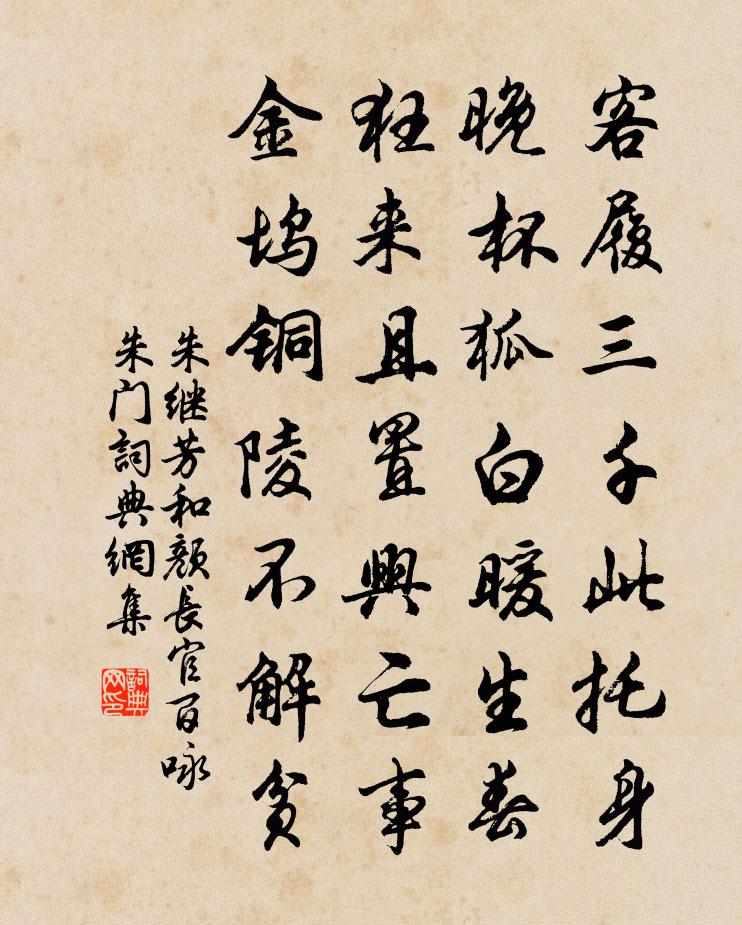 客履三千此托身
晚杯狐白暖生春
狂来且置興亡事
金坞铜陵不解贫
朱继芳和颜長官百咏
朱门
詞典網集
詞典
网印